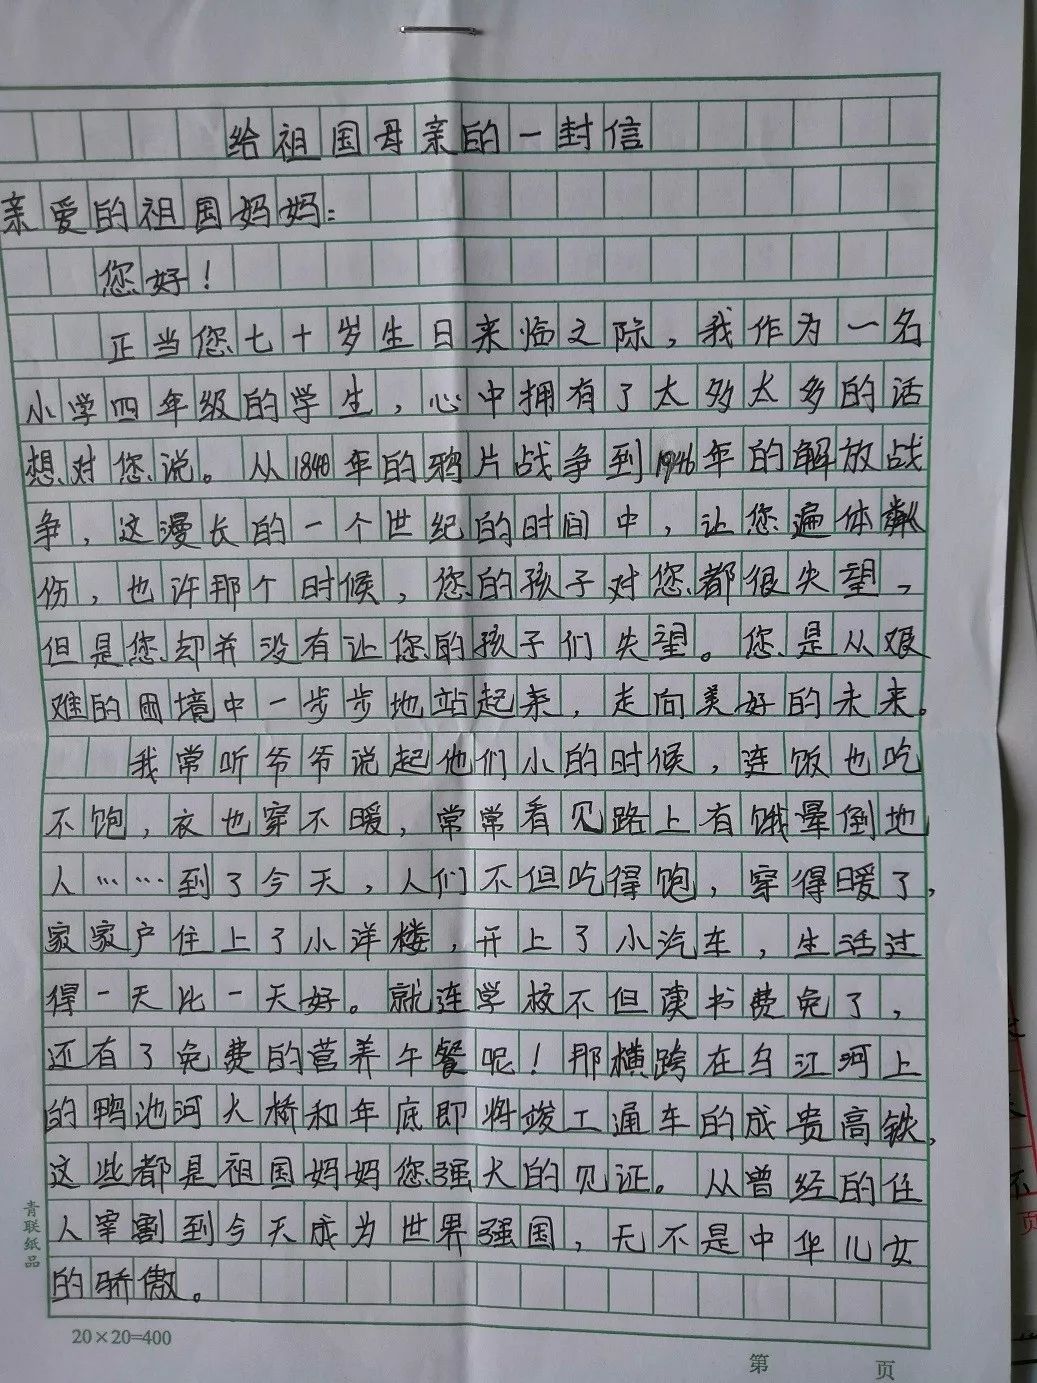 给祖国母亲的一封信
亲爱的祖国妈妈：
您好！
正当您七十岁生日来临之际，我作为一名
小学四年级的学生，心中拥有了太多太多的话
想对您说。从1840年的鸦片战争到1946年的解放战
争，这漫长的一个世纪的时间中，让您遍体
伤，也许那个时候，您的孩子对您都很失望，
但是您却并没有让您的孩子们失望。您是从艰
难的困境中一步步地站起来，走向美好的未来。
我常听爷爷说起他们小的时候，连饭也吃
不饱，衣也穿不暖，常常看见路上有饿晕倒地
人……到了今天，人们不但吃得饱，穿得暖了，
家家户住上了小洋楼，开上了小汽车，生活过
得一天比一天好。就连学校不但读书费免了，
还有了免费的营养午餐呢！那横跨在乌江河上
的鸭池河大桥和年底即将竣工通车的成贵高铁，
这些都是祖国妈妈您强大的见证。从曾经的任
人宰割到今天成为世界强国，无不是中华儿女
的骄傲。
青联纸品
20×20=400
第 页
页